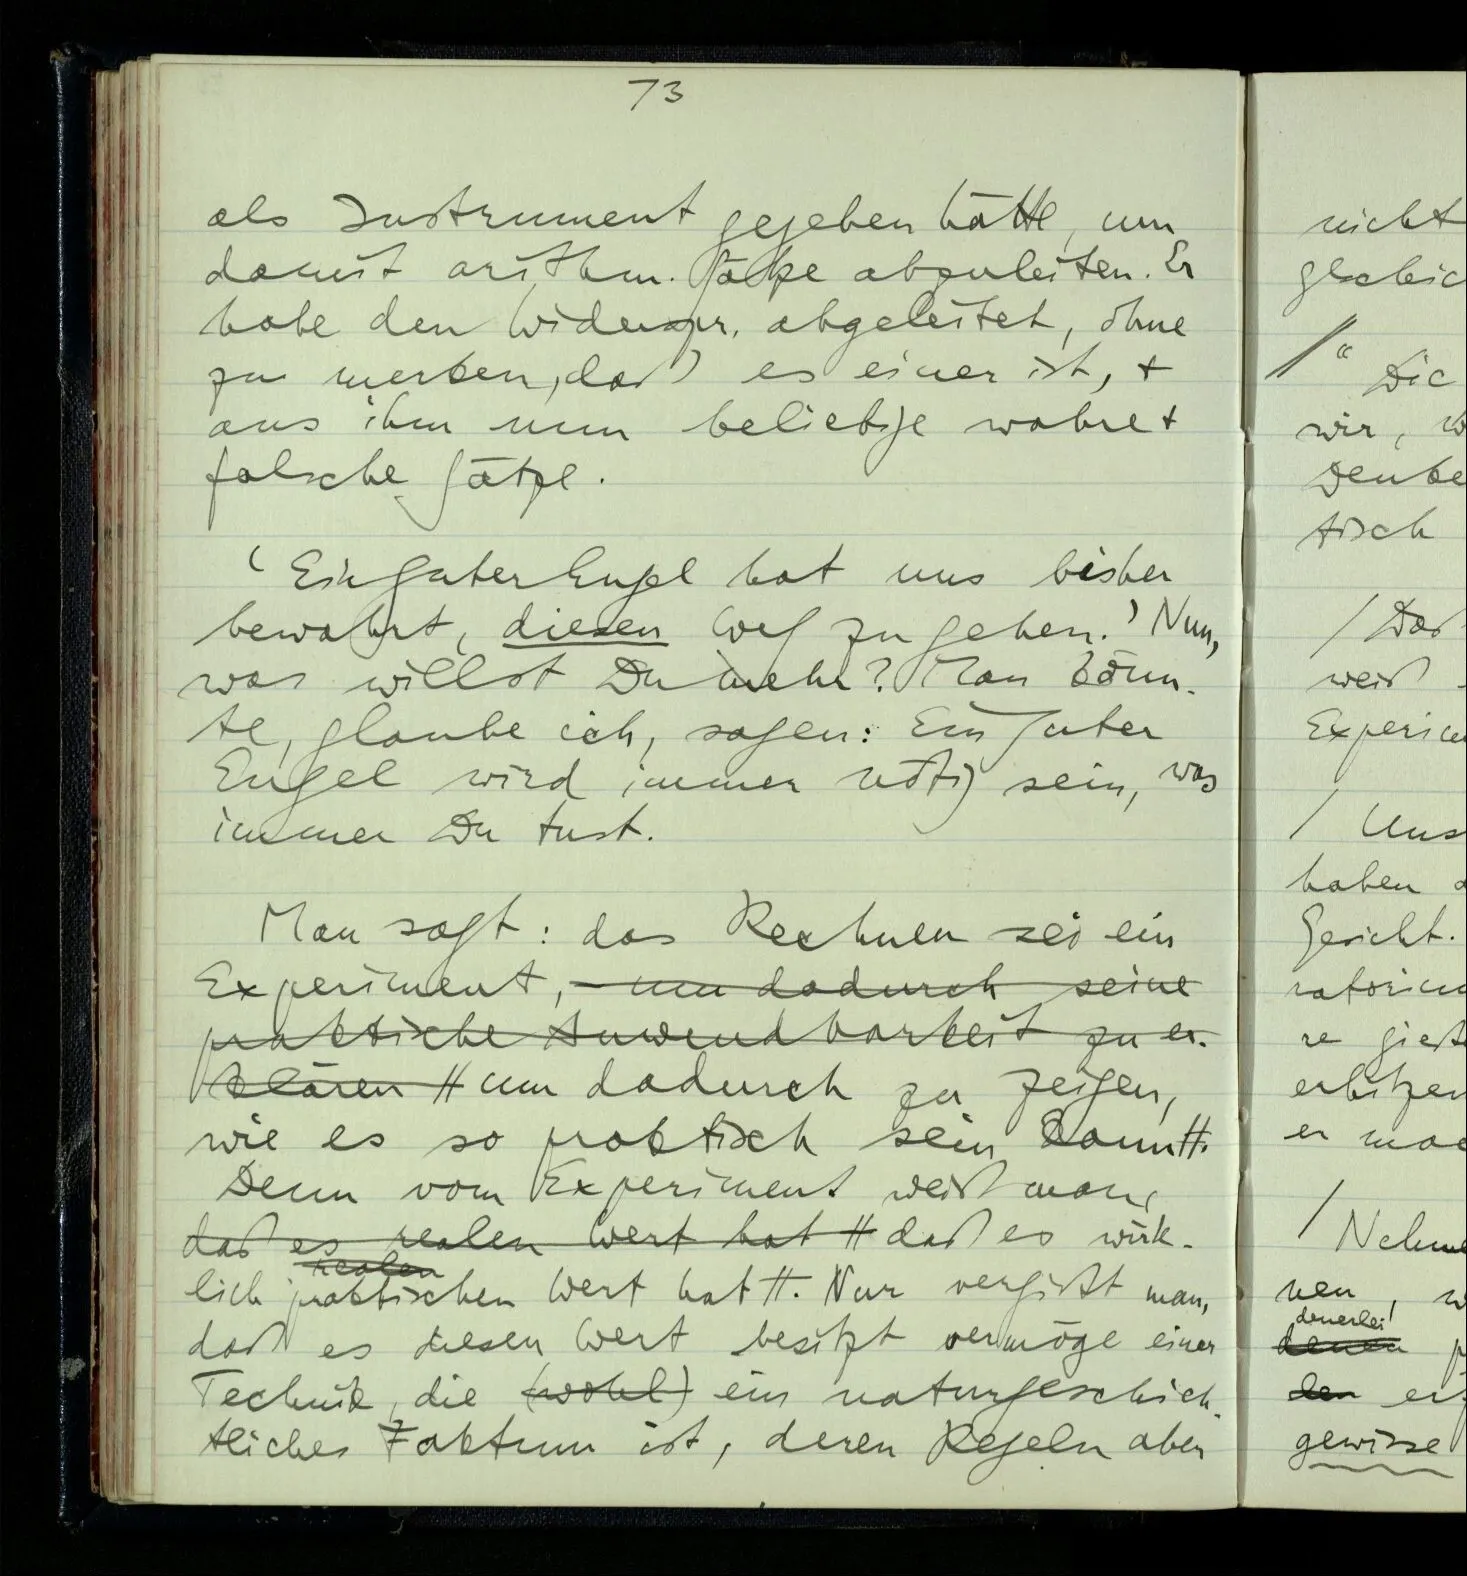 73
als Instrument gegeben hätte, um
damit arithm. Sätze abzuleiten. Er
habe den Widerspr. abgeleitet, ohne
zu merken, daß es einer ist, +
aus ihm nun beliebige wahre +
falsche Sätze.
‘Ein guter Engel hat uns bisher
bewahrt, diesen Weg zu gehen.’ Nun,
was willst Du mehr? Man könn-
te, glaube ich, sagen: Ein guter
Engel wird immer nötig sein, was
immer Du tust.
Man sagt: das Rechnen sei ein
Experiment, um dadurch seine
praktische Anwendbarkeit zu er-
klären // um dadurch zu zeigen,
wie es so praktisch sein kann //.
Denn vom Experiment weiß man,
daß es realen Wert hat // daß es wirk-
realen
lich praktischen Wert hat //. Nur vergißt man,
daß es diesen Wert besitzt vermöge einer
Technik, die (wohl) ein naturgeschich-
tliches Faktum ist, deren Regeln aber
nicht
gleich
// “ Die
wir, w
Denke
tisch
/ Das
weiß
Experim
/ Uns
haben d
Gesicht.
ratorium
re gieß
erhitzen
er mac
/ Nehme
nen, w
denerlei
denen p
den
gewisse